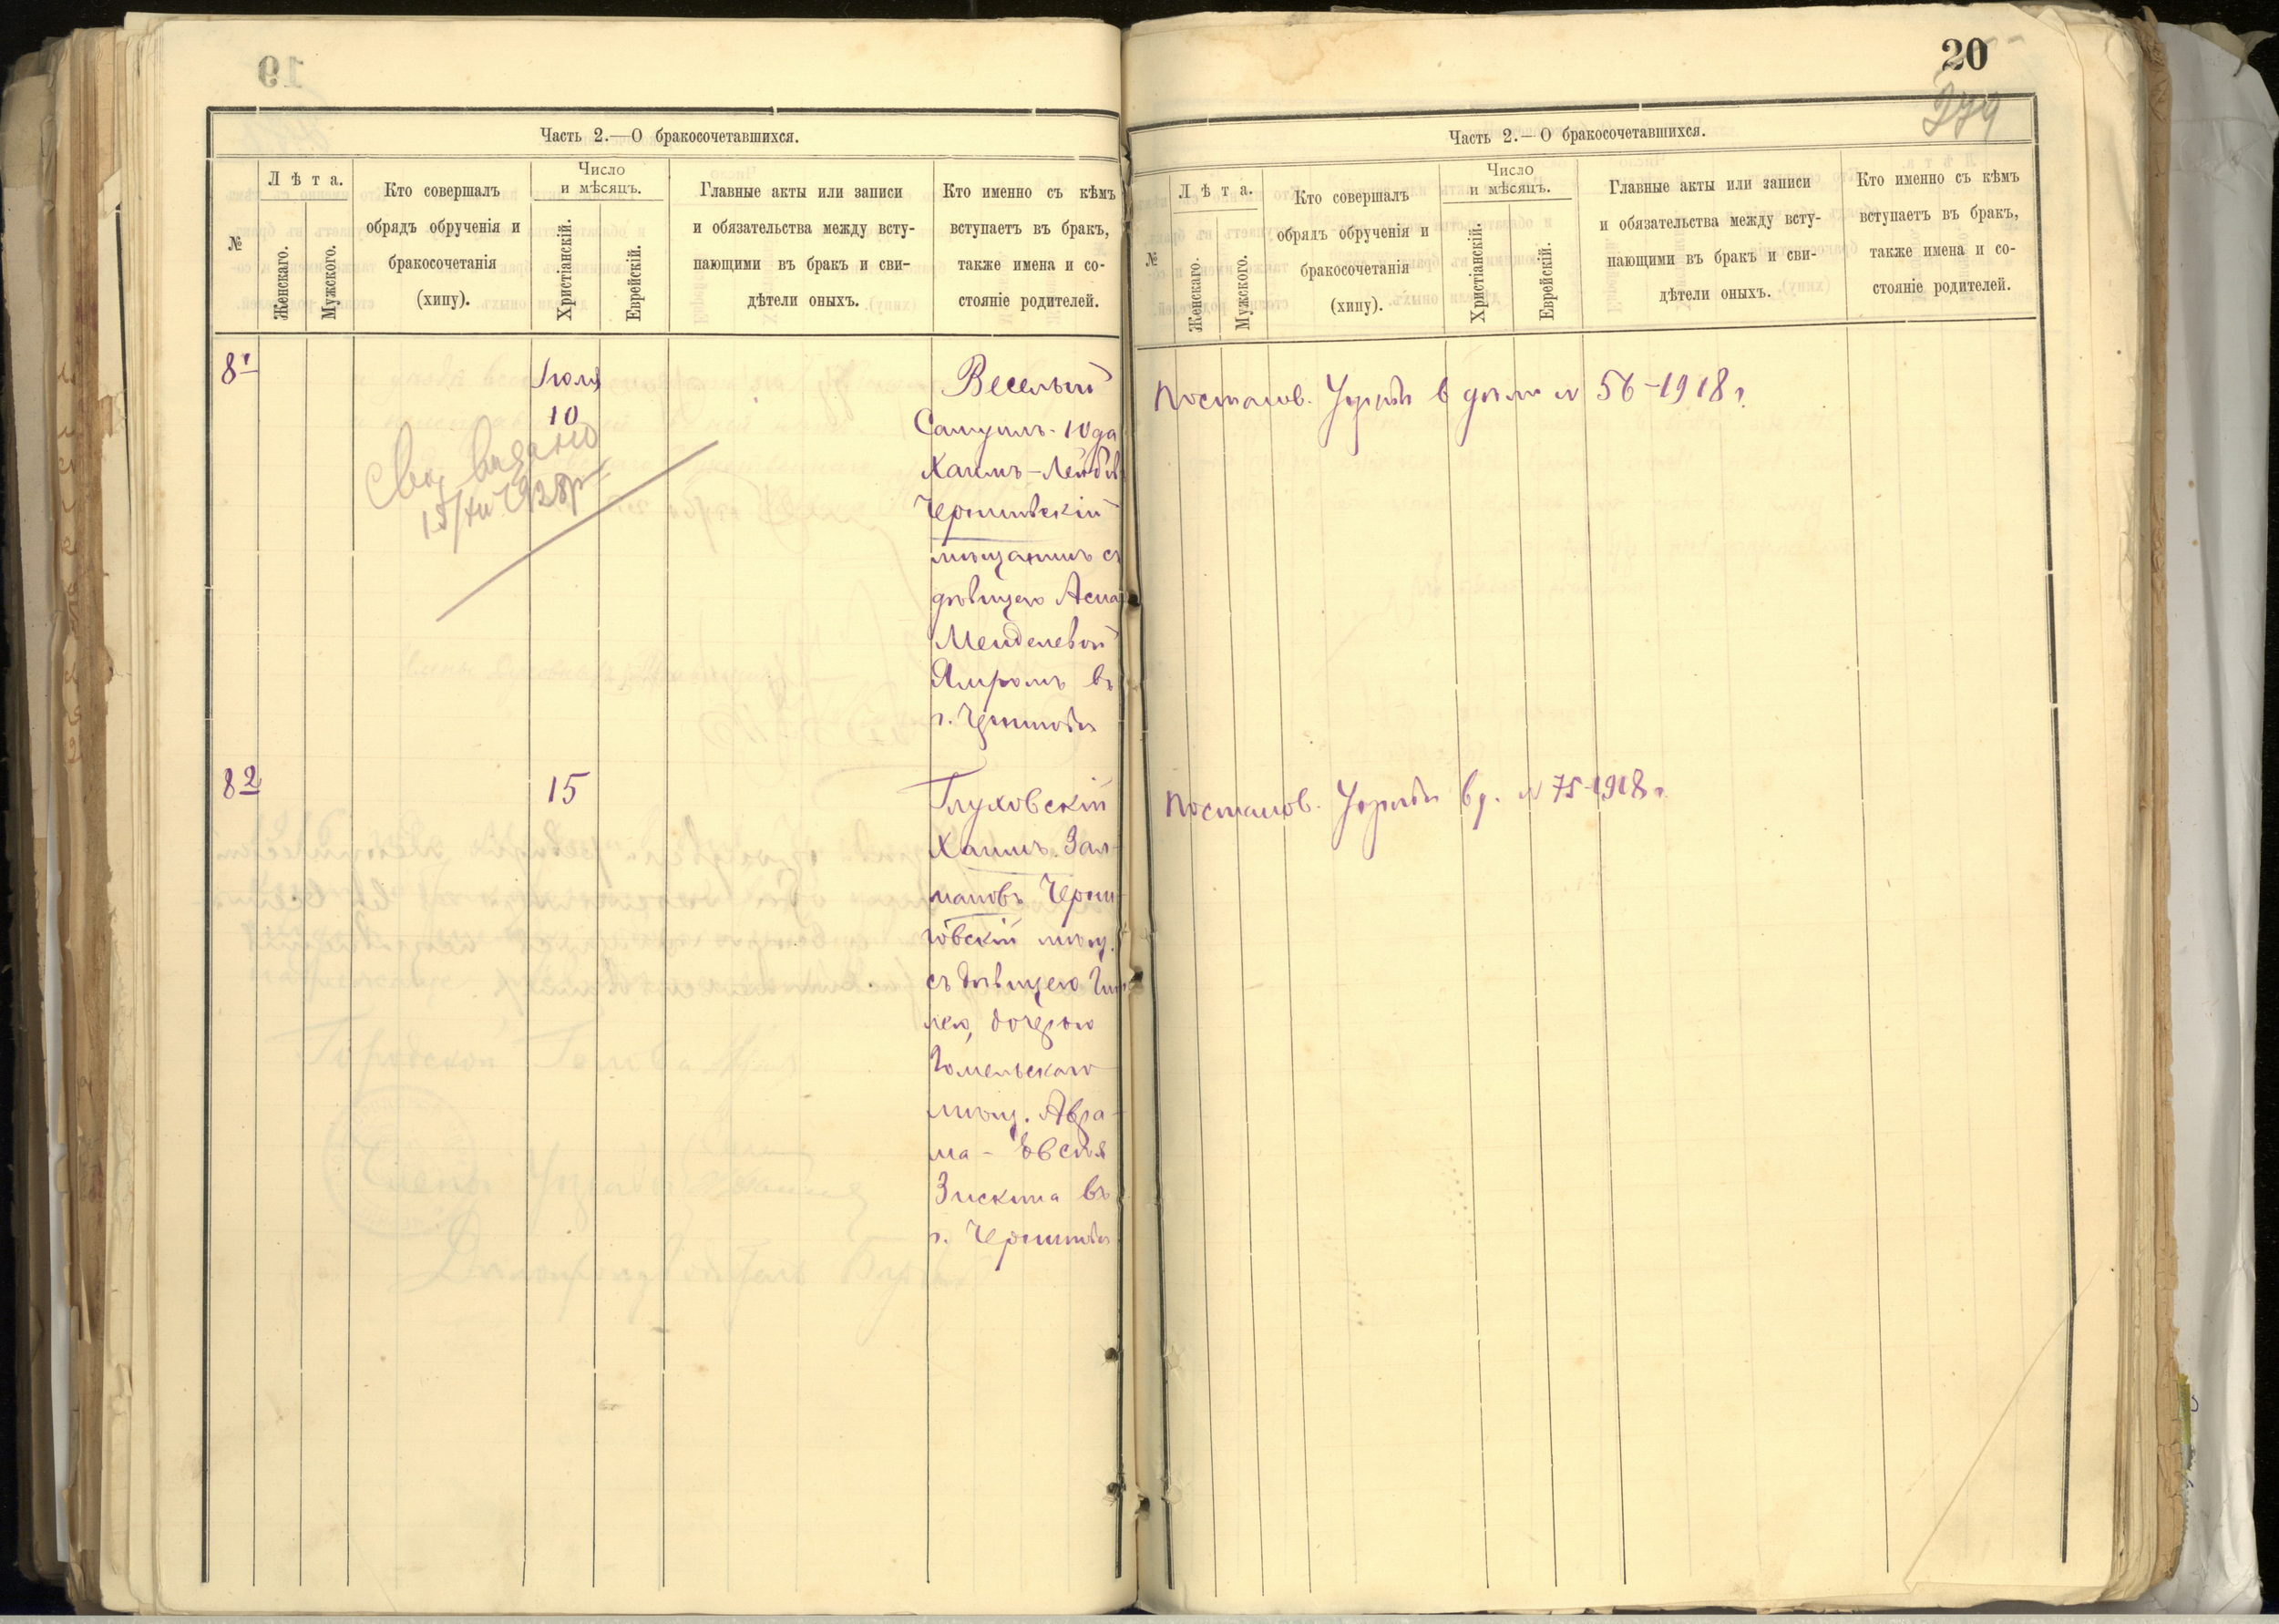 20
279
Часть 2.—О бракосочетавшихся.
№
Лѣта.
Женскаго.
Мужского.
Кто совершалъ
обрядъ обрученія и
бракосочетанія
(хипу).
Число
и мѣсяцъ.
Христіанскій.
Еврейскій.
Главные акты или записи
и обязательства между всту-
пающими въ бракъ и сви-
дѣтели оныхъ.
Кто именно съ кѣмъ
вступаетъ въ бракъ,
также имена и со-
стояніе родителей.
81
Іюля
10
выдано
Веселый
Самуилъ-Юда
Хаимъ-Лейбов
Черниговскій
мѣщанинъ съ
дѣвицею
Менделевой
въ
г. Черниговѣ
82
15
Глуховскій
Хаимъ Зал-
мановъ Черни-
говскій мѣщ.
съ дѣвицею
лею, дочерью
Гомельскаго
мѣщ. Авра-
ма-Евсея
Зискина въ
г. Черниговѣ
Часть 2.—О бракосочетавшихся.
№
Лѣта.
Женскаго.
Мужского.
Кто совершалъ
обрядъ обрученія и
бракосочетанія
(хипу).
Число
и мѣсяцъ.
Христіанскій.
Еврейскій.
Главные акты или записи
и обязательства между всту-
пающими въ бракъ и сви-
дѣтели оныхъ.
Кто именно съ кѣмъ
вступаетъ въ бракъ,
также имена и со-
стояніе родителей.
Постанов. Управы в дѣлѣ № 56-1918 г.
Постанов. Управы в д. № 75-1918 г.